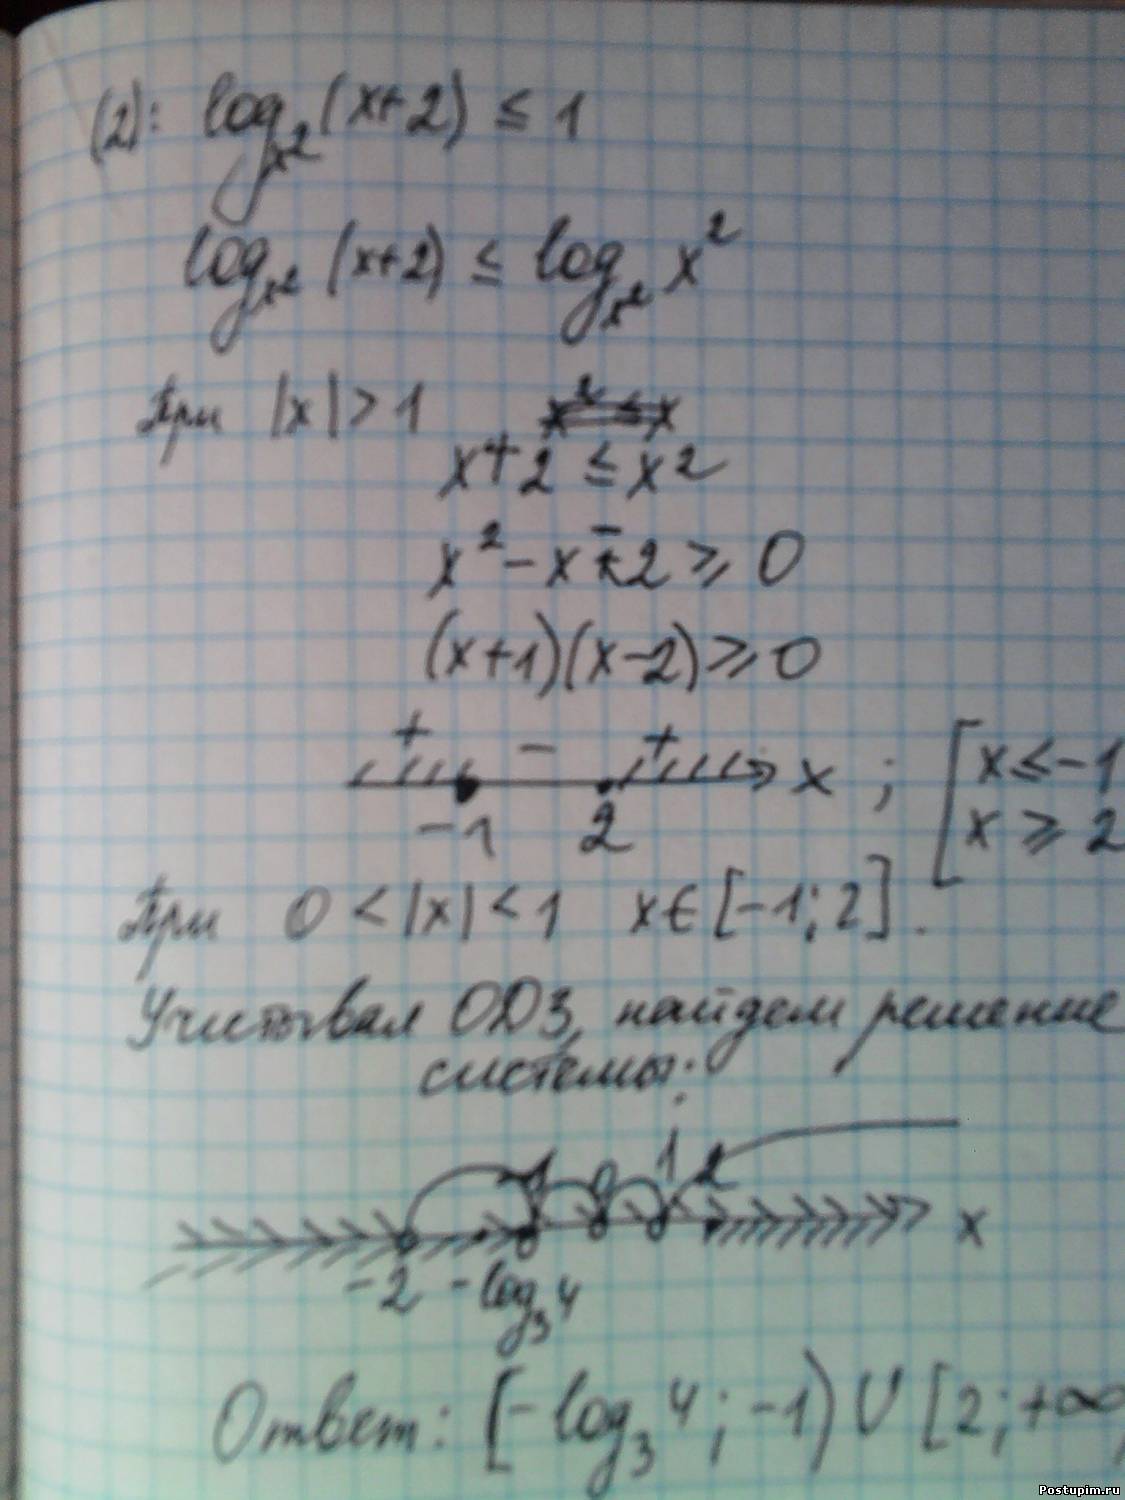 (2): log_{x^2}(x+2) ≤ 1
log_{x^2}(x+2) ≤ log_{x^2} x^2
При |x| > 1
x+2 ≤ x^2
x^2 - x - 2 ≥ 0
(x+1)(x-2) ≥ 0
+ - +
-1 2 x ; [ x ≤ -1
x ≥ 2
При 0 < |x| < 1 x ∈ [-1; 2].
Учитывая ОДЗ, найдем решение
системы:
0 1 2
x
-2 -log_3 4
Ответ: [-log_3 4; -1) ∪ [2; +∞
Postupim.ru